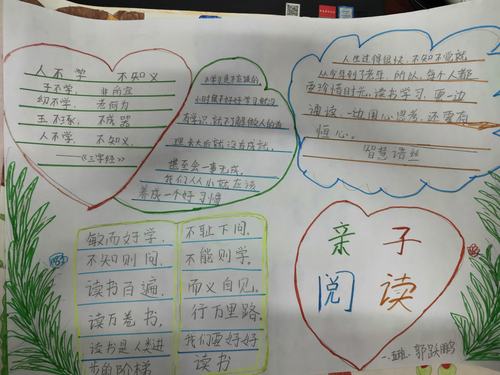 人不学 不知义
子不学, 非所宜
幼不学, 老何为
玉不琢, 不成器
人不学, 不知义,
——《三字经》
小时候不好好学习就没
有学识,就不了解做人的道
理,长大后就没有成就,
甚至会一事无成。
我们从小就应该
养成一个好习惯
人生过得很快,不知不觉就
从今年到了老年,所以,每个人都
要珍惜时光,读书学习,要一边
诵读,一边用心思考,还要有
恒心。
智慧语丝
敏而好学,
不知则问,
读书百遍,
读万卷书,
读书是人类进
步的阶梯
不耻下问,
不能则学。
而义自见。
行万里路。
我们要好好
读书
亲子
阅读
郭跃鹏